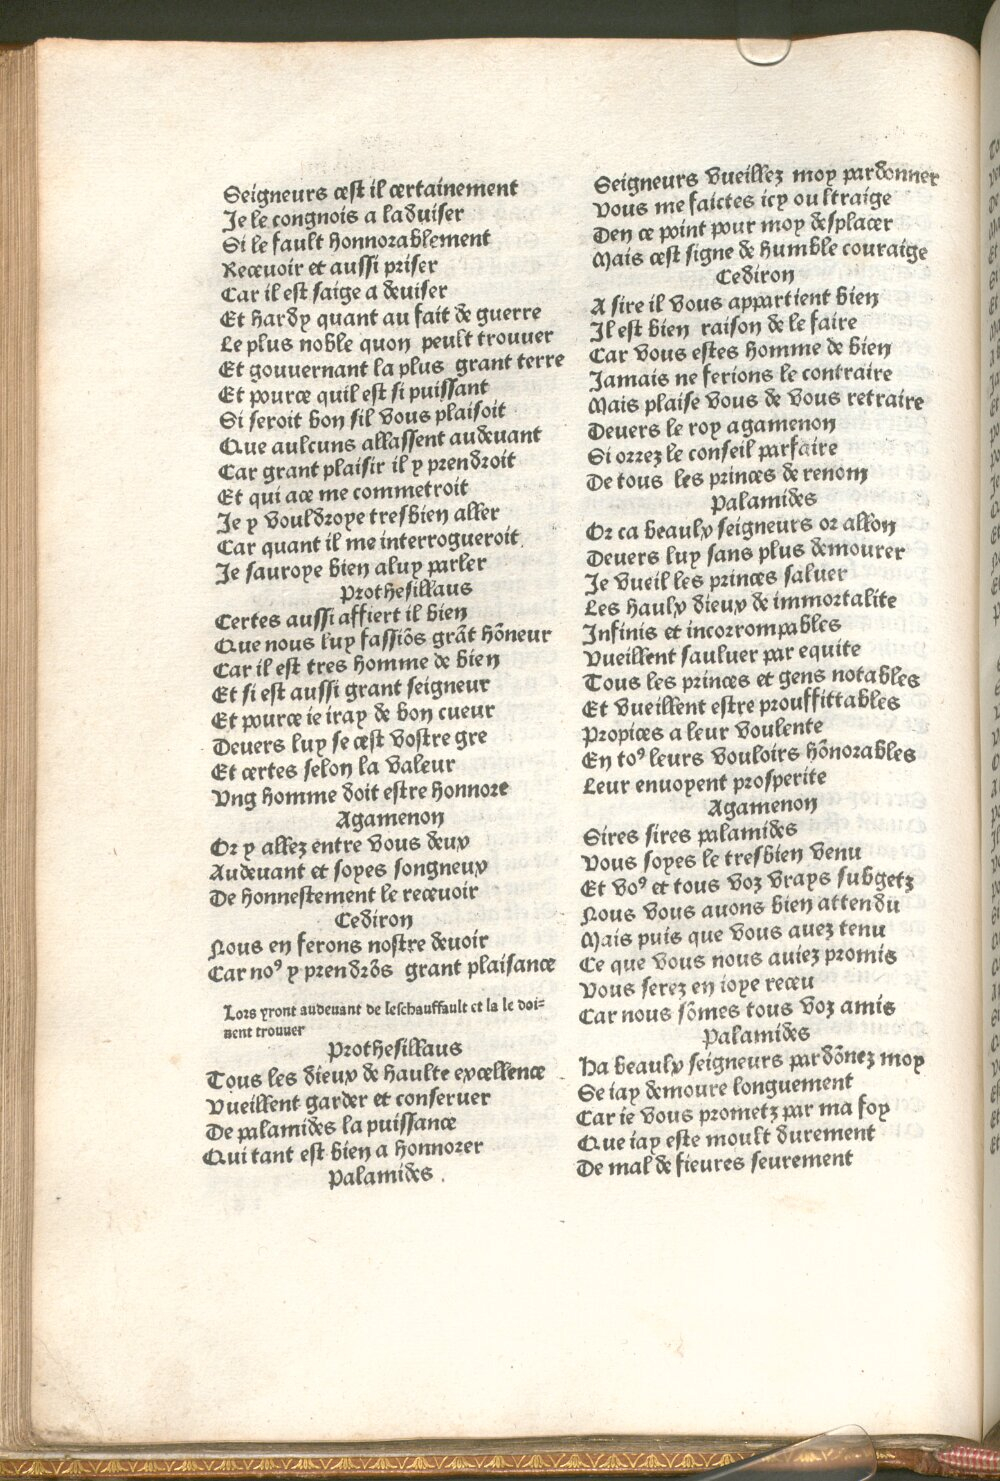 Seigneurs cest il certainement
Je le congnois a laduiser
Si le fault honnorablement
Receuoir et aussi priser
Car il est saige a deuiser
Et hardy quant au fait de guerre
Le plus noble quon peult trouuer
Et gouuernant la plus grant terre
Et pource quil est si puissant
Si seroit bon sil vous plaisoit
Que aulcuns allassent audeuant
Car grant plaisir il y prendroit
Et qui ace me commetroit
Je y vouldroye tresbien aller
Car quant il me interrogueroit
Je sauroye bien aluy parler
Prothesillaus
Certes aussi affiert il bien
Que nous luy fassiōs grāt hōneur
Car il est tres homme de bien
Et si est aussi grant seigneur
Et pource ie iray de bon cueur
Deuers luy se cest vostre gre
Et certes selon la valeur
Vng homme doit estre honnore
Agamenon
Or y allez entre vous deux
Audeuant et soyes songneux
De honnestement le receuoir
Cediron
Nous en ferons nostre deuoir
Car noꝰ y prendrōs grant plaisance
Lors yront audeuant de leschauffault et la le doi-
uent trouuer
Prothesillaus
Tous les dieux de haulte excellence
Vueillent garder et conseruer
De palamides la puissance
Qui tant est bien a honnorer
Palamides.
Seigneurs vueillez moy pardonner
Vous me faictes icy oultraige
Den ce point pour moy desplacer
Mais cest signe de humble couraige
Cediron
A sire il vous appartient bien
Il est bien raison de le faire
Car vous estes homme de bien
Jamais ne ferions le contraire
Mais plaise vous de vous retraire
Deuers le roy agamenon
Si orrez le conseil parfaire
De tous les princes de renom
Palamides
Or ca beaulx seigneurs or allon
Deuers luy sans plus demourer
Je vueil les princes saluer
Les haulx dieux de immortalite
Infinis et incorrompables
Vueillent sauluer par equite
Tous les princes et gens notables
Et vueillent estre prouffittables
Propices a leur voulente
En toꝰ leurs vouloirs hōnorables
Leur enuoyent prosperite
Agamenon
Sires sires palamides
Vous soyes le tresbien venu
Et voꝰ et tous voz vrays subgetz
Nous vous auons bien attendu
Mais puis que vous auez tenu
Ce que vous nous auiez promis
Vous serez en ioye receu
Car nous sōmes tous voz amis
Palamides
Ha beaulx seigneurs pardōnez moy
Se iay demoure longuement
Car ie vous prometz par ma foy
Que iay este moult durement
De mal de fieures seurement